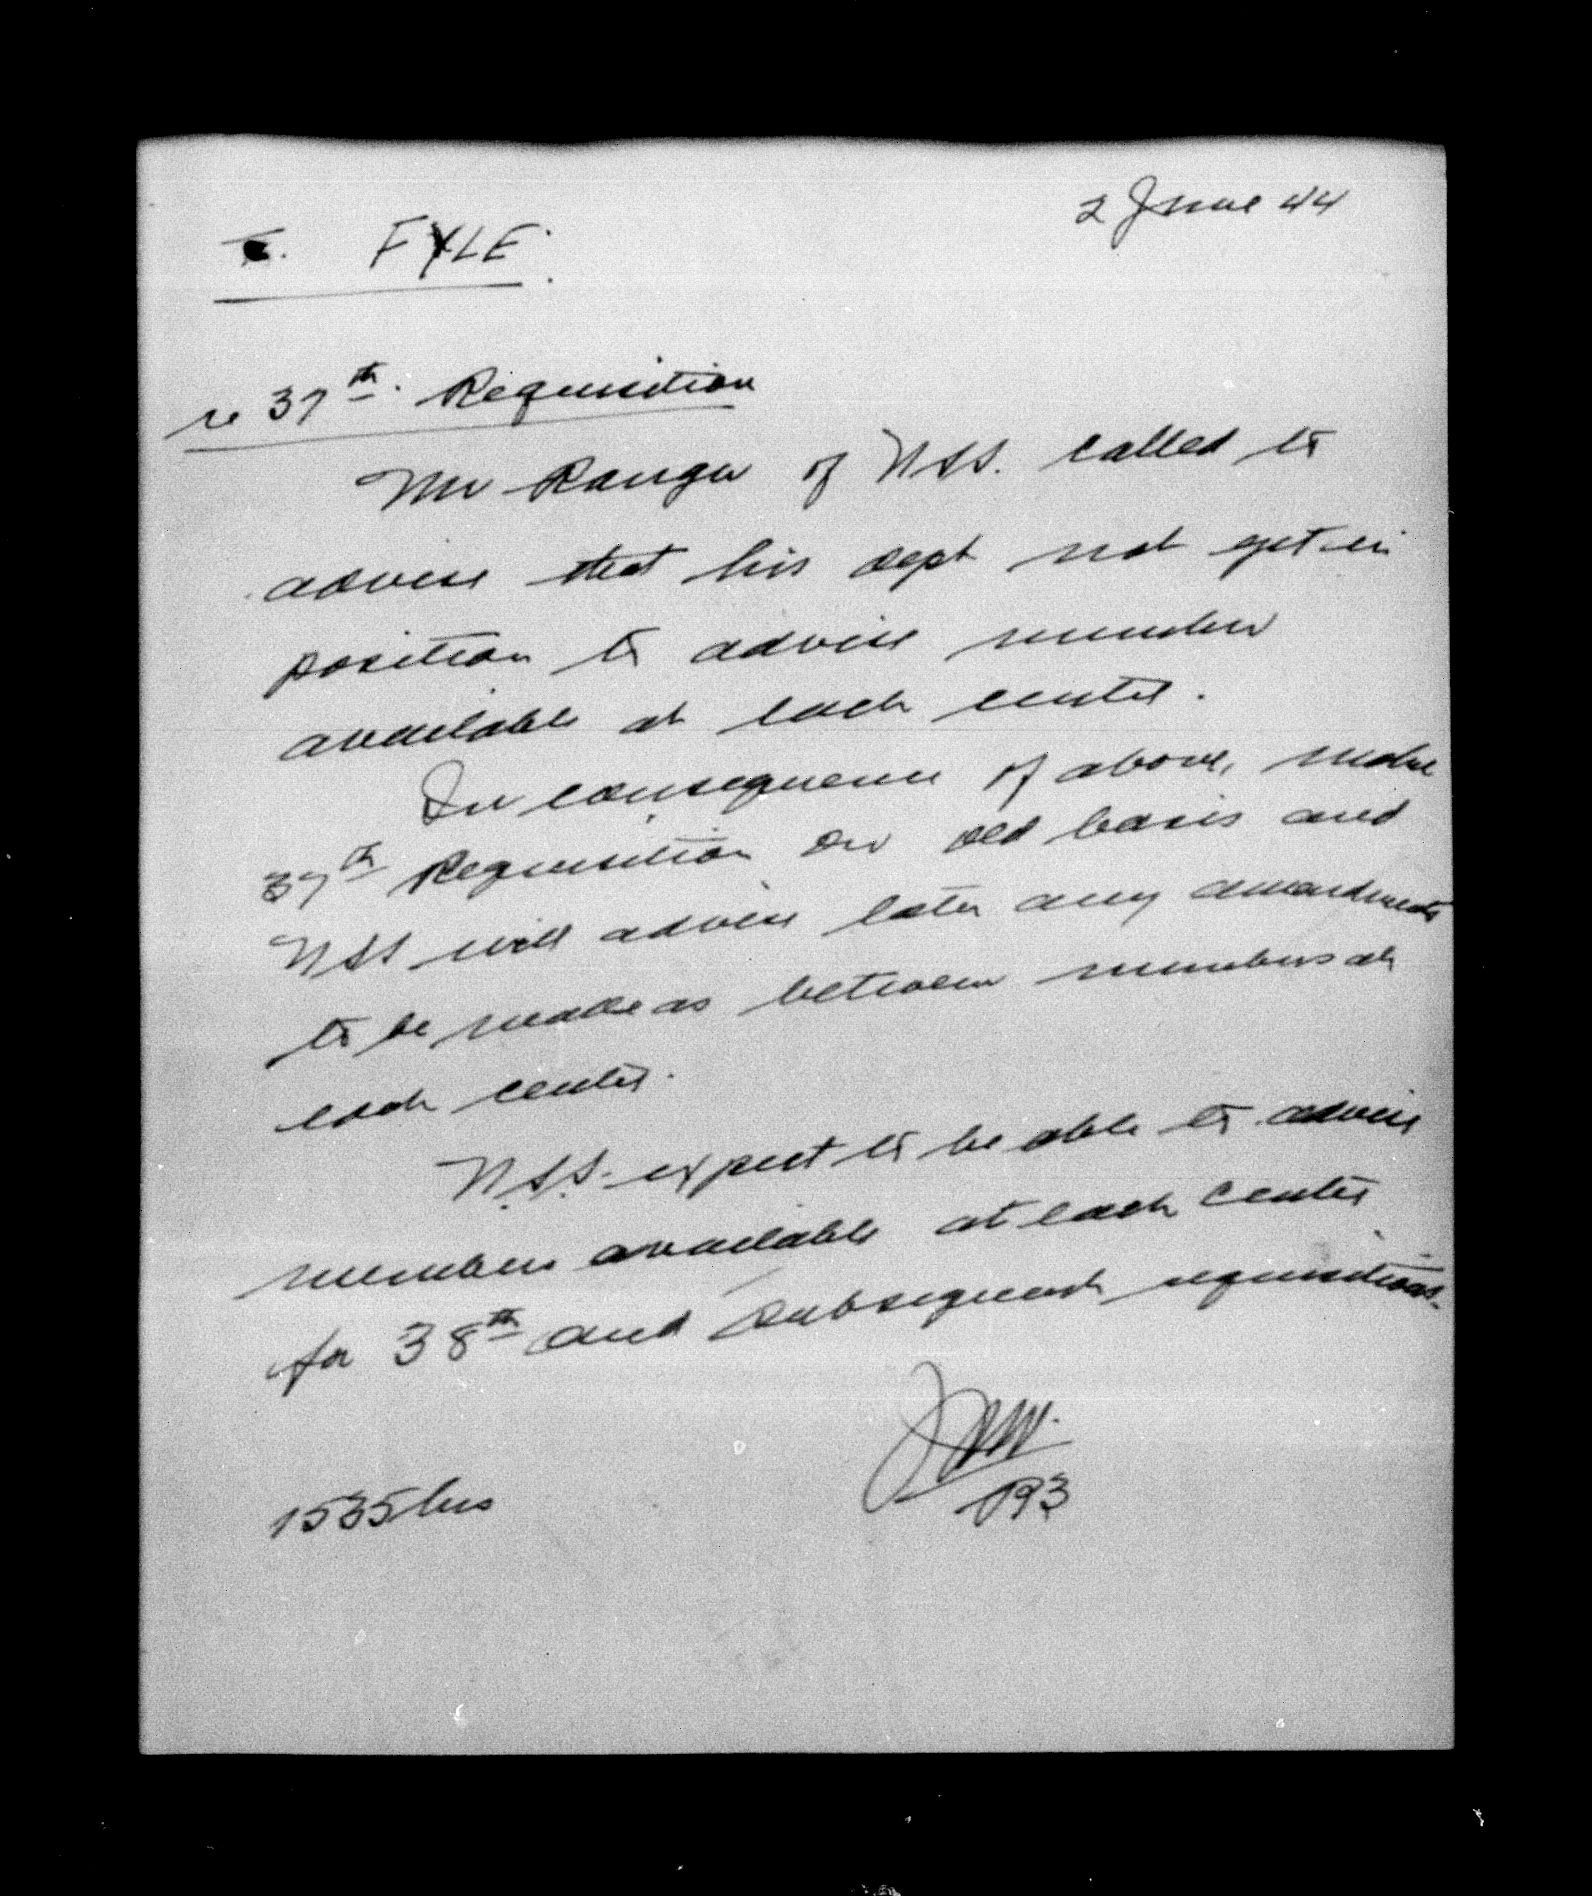 2 June 44
FYLE.
re 37th Requisition
Mr Ranger of NSS. called to
advise that his dept not yet in
position to advise number
available at each center.
In consequence of above, make
37th Requisition on old basis and
NSS will advise later any amendments
to be made as between numbers at
each center.
NSS. expect to be able to advise
numbers available at each center
for 38th and subsequent requisitions.
1535 hrs